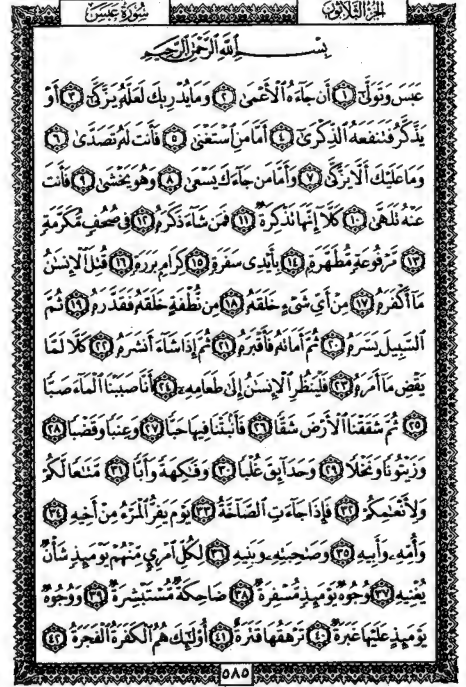 سُورَةُ عَبَسَ الجُزءُ الثَّلَاثُونَ
بِسْمِ ٱللَّهِ ٱلرَّحْمَٰنِ ٱلرَّحِيمِ
عَبَسَ وَتَوَلَّىٰٓ ١ أَن جَآءَهُ ٱلْأَعْمَىٰ ٢ وَمَا يُدْرِيكَ لَعَلَّهُۥ يَزَّكَّىٰٓ ٣ أَوْ
يَذَّكَّرُ فَتَنفَعَهُ ٱلذِّكْرَىٰٓ ٤ أَمَّا مَنِ ٱسْتَغْنَىٰ ٥ فَأَنتَ لَهُۥ تَصَدَّىٰ ٦
وَمَا عَلَيْكَ أَلَّا يَزَّكَّىٰ ٧ وَأَمَّا مَن جَآءَكَ يَسْعَىٰ ٨ وَهُوَ يَخْشَىٰ ٩ فَأَنتَ
عَنْهُ تَلَهَّىٰ ١٠ كَلَّآ إِنَّهَا تَذْكِرَةٌ ١١ فَمَن شَآءَ ذَكَرَهُۥ ١٢ فِى صُحُفٍ مُّكَرَّمَةٍ
١٣ مَّرْفُوعَةٍ مُّطَهَّرَةٍۭ ١٤ بِأَيْدِى سَفَرَةٍ ١٥ كِرَامٍۭ بَرَرَةٍ ١٦ قُتِلَ ٱلْإِنسَٰنُ
مَآ أَكْفَرَهُۥ ١٧ مِنْ أَىِّ شَىْءٍ خَلَقَهُۥ ١٨ مِن نُّطْفَةٍ خَلَقَهُۥ فَقَدَّرَهُۥ ١٩ ثُمَّ
ٱلسَّبِيلَ يَسَّرَهُۥ ٢٠ ثُمَّ أَمَاتَهُۥ فَأَقْبَرَهُۥ ٢١ ثُمَّ إِذَا شَآءَ أَنشَرَهُۥ ٢٢ كَلَّا لَمَّا
يَقْضِ مَآ أَمَرَهُۥ ٢٣ فَلْيَنظُرِ ٱلْإِنسَٰنُ إِلَىٰ طَعَامِهِۦٓ ٢٤ أَنَّا صَبَبْنَا ٱلْمَآءَ صَبًّا
٢٥ ثُمَّ شَقَقْنَا ٱلْأَرْضَ شَقًّا ٢٦ فَأَنۢبَتْنَا فِيهَا حَبًّا ٢٧ وَعِنَبًا وَقَضْبًا ٢٨
وَزَيْتُونًا وَنَخْلًا ٢٩ وَحَدَآئِقَ غُلْبًا ٣٠ وَفَٰكِهَةً وَأَبًّا ٣١ مَّتَٰعًا لَّكُمْ
وَلِأَنْعَٰمِكُمْ ٣٢ فَإِذَا جَآءَتِ ٱلصَّآخَّةُ ٣٣ يَوْمَ يَفِرُّ ٱلْمَرْءُ مِنْ أَخِيهِ ٣٤
وَأُمِّهِۦ وَأَبِيهِ ٣٥ وَصَٰحِبَتِهِۦ وَبَنِيهِ ٣٦ لِكُلِّ ٱمْرِئٍ مِّنْهُمْ يَوْمَئِذٍ شَأْنٌ
يُغْنِيهِ ٣٧ وُجُوهٌ يَوْمَئِذٍ مُّسْفِرَةٌ ٣٨ ضَاحِكَةٌ مُّسْتَبْشِرَةٌ ٣٩ وَوُجُوهٌ
يَوْمَئِذٍ عَلَيْهَا غَبَرَةٌ ٤٠ تَرْهَقُهَا قَتَرَةٌ ٤١ أُو۟لَٰٓئِكَ هُمُ ٱلْكَفَرَةُ ٱلْفَجَرَةُ ٤٢
٥٨٥